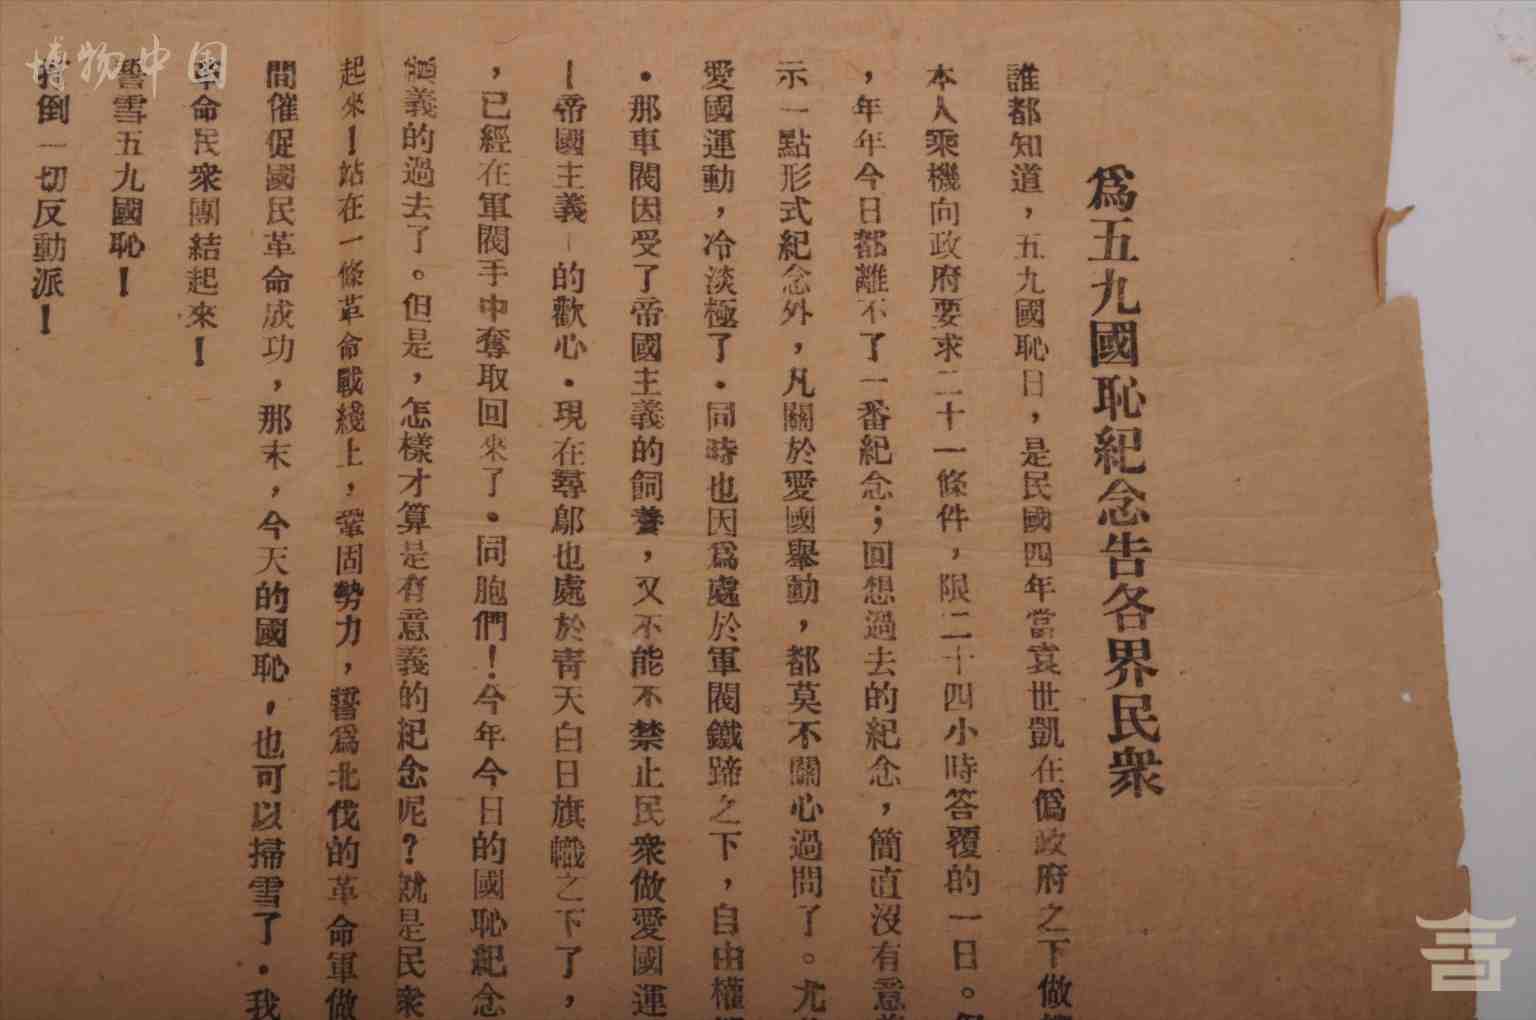 博物中国
爲五九國恥紀念告各界民衆
誰都知道，五九國恥日，是民國四年當袁世凱在僞政府之下做
本人乘機向政府要求二十一條件，限二十四小時答覆的一日。
，年年今日都離不了一番紀念；回想過去的紀念，簡直沒有意
示一點形式紀念外，凡關於愛國舉動，都莫不關心過問了。尤
愛國運動，冷淡極了．同時也因爲處於軍閥鐵蹄之下，自由權
．那車閥因受了帝國主義的飼養，又不能不禁止民衆做愛國運
—帝國主義—的歡心．現在尋鄔也處於靑天白日旗幟之下了，
，已經在軍閥手中奪取回來了．同胞們！今年今日的國恥紀念
義的過去了。但是，怎樣才算是有意義的紀念呢？就是民衆
起來！站在一條革命戰綫上，鞏固勢力，誓爲北伐的革命軍做
間催促國民革命成功，那末，今天的國恥，也可以掃雪了．我
革命民衆團結起來！
誓雪五九國恥！
打倒一切反動派！